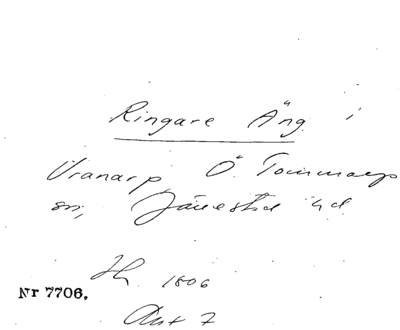 Ringare Äng i
Vranarp Ö. Tommarps
sn, Järrestad hd
1806
Nr 7706.
Akt 7